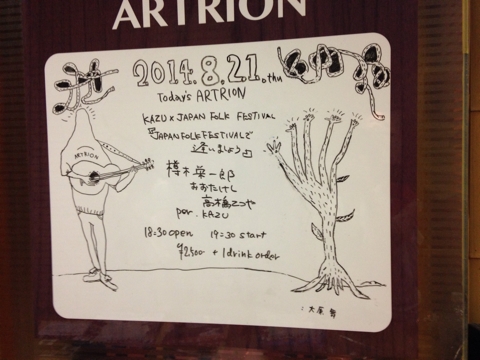 ARTRION
2014.8.21.thu
Today's ARTRION
KAZU x JAPAN FOLK FESTIVAL
『JAPAN FOLK FESTIVALで
逢いましょう』
ARTRION
樽木栄一郎
おおたけし
高橋てつや
per. KAZU
18:30 open 19:30 start
¥2500 + 1drink order